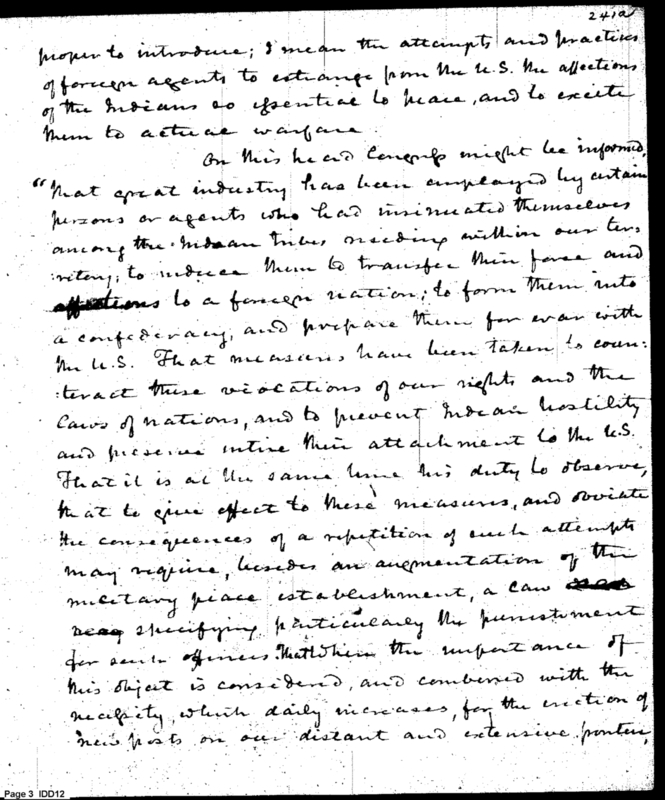 241a
proper to introduce; I mean the attempts and practices
of foreign agents to estrange from the U.S. the affections
of the Indians so essential to peace, and to excite
them to actual warfare.
On this head Congress might be informed,
"That great industry has been employed by certain
persons or agents who had insinuated themselves
among the Indian tribes residing within our ter-
ritory; to induce them to transfer their force and
affections to a foreign nation; to form them into
a confederacy, and prepare them for war with
the U.S. That measures have been taken to coun:
:teract these violations of our rights and the
Laws of nations, and to prevent Indian hostility
and preserve intire their attachment to the U.S.
That it is at the same time his duty to observe,
that to give effect to these measures, and obviate
the consequences of a repetition of such attempts
may require, besides an augmentation of the
military peace establishment, a law
specifying particularly the punishment
for such offences. That when the importance of
this object is considered, and combined with the
necessity, which daily increases, for the erection of
new posts on our distant and extensive frontier,
Page 3 IDD12